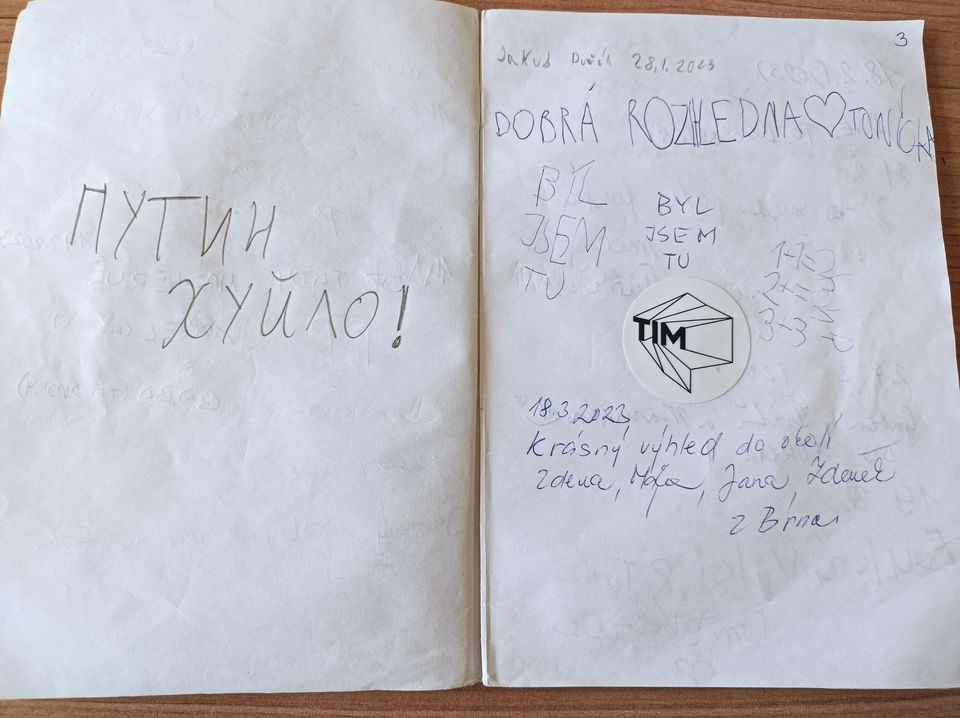 ПУТИН
ХУЙЛО!
3
Jakub 28.1.2023
DOBRÁ ROZHLEDNA TONIČKA
BYL
JSEM
TU
BYL
JSEM
TU
1+1=2
3+3
TIM
18.3.2023
Krásný výhled do okolí
Zdena, Jana, Zdeněk
z Brna